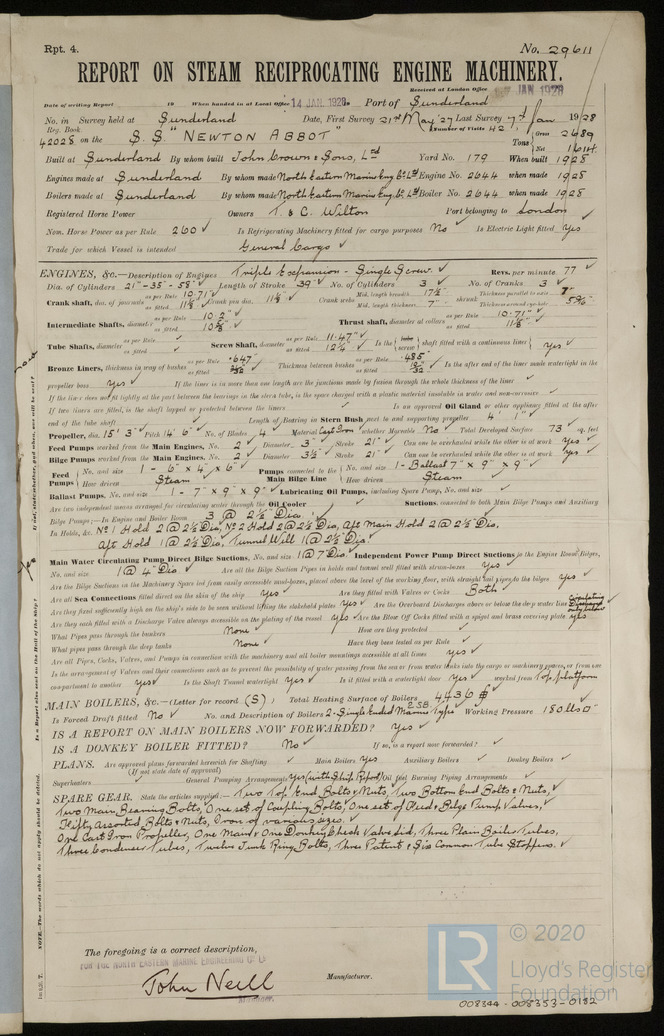 Rpt. 4. No. 29611
REPORT ON STEAM RECIPROCATING ENGINE MACHINERY.
Received at London Office JAN 1928
Date of writing Report 19 When handed in at Local Office 14 JAN. 1928. Port of Sunderland
No. in Survey held at Sunderland Date, First Survey 21st May '27 Last Survey 7th Jan 1928
Reg. Book (Number of Visits 42)
42028 on the S.S. "NEWTON ABBOT" Tons Gross 2689
Net 1614
Built at Sunderland By whom built John Crown & Sons, Ltd Yard No. 179 When built 1928
Engines made at Sunderland By whom made North Eastern Marine Eng. Co. Ltd Engine No. 2644 when made 1928
Boilers made at Sunderland By whom made North Eastern Marine Eng. Co. Ltd Boiler No. 2644 when made 1928
Registered Horse Power Owners T. & C. Wilton Port belonging to London
Nom. Horse Power as per Rule 260 ✓ Is Refrigerating Machinery fitted for cargo purposes No ✓ Is Electric Light fitted Yes
Trade for which Vessel is intended General Cargo ✓
ENGINES, &c.—Description of Engines Triple Expansion - Single Screw. ✓ Revs. per minute 77 ✓
Dia. of Cylinders 21"-35"-58" Length of Stroke 39" No. of Cylinders 3 ✓ No. of Cranks 3 ✓
Crank shaft, dia. of journals as per Rule 10.71" as fitted 11⅛" Crank pin dia. 11⅛" Crank webs Mid. length breadth 17½" Mid. length thickness 7" shrunk Thickness parallel to axis 7" Thickness around eye-hole
Intermediate Shafts, diameter as per Rule 10.2" as fitted Thrust shaft, diameter at collars as per Rule 10.71" as fitted 11⅛"
Tube Shafts, diameter as per Rule as fitted Screw Shaft, diameter as per Rule 11.47" as fitted 12¼" Is the {tube screw} shaft fitted with a continuous liner { Yes ✓
Bronze Liners, thickness in way of bushes as per Rule .647" as fitted Thickness between bushes as per Rule .485" as fitted Is the after end of the liner made watertight in the
propeller boss Yes ✓ If the liner is in more than one length are the junctions made by fusion through the whole thickness of the liner ✓
If the liner does not fit tightly at the part between the bearings in the stern tube, is the space charged with a plastic material insoluble in water and non-corrosive ✓
If two liners are fitted, is the shaft lapped or protected between the liners ✓ Is an approved Oil Gland or other appliance fitted at the after
end of the tube shaft ✓ Length of Bearing in Stern Bush next to and supporting propeller 4' 1" ✓
Propeller, dia. 15' 3" Pitch 14' 6" No. of Blades 4 Material Cast Iron whether Moveable No ✓ Total Developed Surface 73 sq. feet
Feed Pumps worked from the Main Engines, No. 2 ✓ Diameter 3" Stroke 21" Can one be overhauled while the other is at work Yes ✓
Bilge Pumps worked from the Main Engines, No. 2 ✓ Diameter 3½" Stroke 21" Can one be overhauled while the other is at work Yes ✓
Feed Pumps { No. and size 1 - 6" x 4" x 6" ✓ Pumps connected to the Main Bilge Line { No. and size 1 - Ballast 7" x 9" x 9" ✓
How driven Steam How driven Steam
Ballast Pumps, No. and size 1 - 7" x 9" x 9" ✓ Lubricating Oil Pumps, including Spare Pump, No. and size ✓
Are two independent means arranged for circulating water through the Oil Cooler ✓ Suctions, connected to both Main Bilge Pumps and Auxiliary
Bilge Pumps;—In Engine and Boiler Room 3 @ 2½" Dia. ✓
In Holds, &c. No 1 Hold 2 @ 2½ Dia, No 2 Hold 2 @ 2½ Dia, Aft Main Hold 2 @ 2½ Dia,
Aft Hold 1 @ 2½ Dia, Tunnel Well 1 @ 2½ Dia ✓
Main Water Circulating Pump Direct Bilge Suctions, No. and size 1 @ 7" Dia. ✓ Independent Power Pump Direct Suctions to the Engine Room Bilges,
No. and size 1 @ 4" Dia ✓ Are all the Bilge Suction Pipes in holds and tunnel well fitted with strum-boxes Yes ✓
Are the Bilge Suctions in the Machinery Space led from easily accessible mud-boxes, placed above the level of the working floor, with straight tail pipes to the bilges Yes ✓
Are all Sea Connections fitted direct on the skin of the ship Yes ✓ Are they fitted with Valves or Cocks Both ✓
Are they fixed sufficiently high on the ship's side to be seen without lifting the stokehold plates Yes ✓ Are the Overboard Discharges above or below the deep water line
Are they each fitted with a Discharge Valve always accessible on the plating of the vessel Yes ✓ Are the Blow Off Cocks fitted with a spigot and brass covering plate Yes ✓
What Pipes pass through the bunkers None ✓ How are they protected ✓
What pipes pass through the deep tanks None ✓ Have they been tested as per Rule ✓
Are all Pipes, Cocks, Valves, and Pumps in connection with the machinery and all boiler mountings accessible at all times Yes ✓
Is the arrangement of Valves and their connections such as to prevent the possibility of water passing from the sea or from water tanks into the cargo or machinery spaces, or from one
compartment to another Yes ✓ Is the Shaft Tunnel watertight Yes ✓ Is it fitted with a watertight door Yes ✓ worked from Top platform
MAIN BOILERS, &c.—(Letter for record (S)) Total Heating Surface of Boilers 4436 ✓
Is Forced Draft fitted No ✓ No. and Description of Boilers 2 - Single Ended Marine Type 2 SB. Working Pressure 180 lbs □"
IS A REPORT ON MAIN BOILERS NOW FORWARDED? Yes ✓
IS A DONKEY BOILER FITTED? No ✓ If so, is a report now forwarded? ✓
PLANS. Are approved plans forwarded herewith for Shafting ✓ Main Boilers Yes Auxiliary Boilers ✓ Donkey Boilers ✓
(If not state date of approval)
Superheaters General Pumping Arrangements Yes (with Ship Report) Oil fuel Burning Piping Arrangements ✓
SPARE GEAR. State the articles supplied:— Two Top End Bolts & Nuts, Two Bottom End Bolts & Nuts,
Two Main Bearing Bolts, One set of Coupling Bolts, One set of Feed & Bilge Pump Valves,
Fifty Assorted Bolts & Nuts, Iron of various sizes.
One Cast Iron Propeller, One Main & One Donkey Check Valve lid, Three Plain Boiler Tubes,
Three Condenser Tubes, Twelve Junk Ring Bolts, Three Patent & Six Common Tube Stoppers. ✓
The foregoing is a correct description,
FOR THE NORTH EASTERN MARINE ENGINEERING Co. Ld
John Neill Manufacturer.
Manager.
NOTE.—The words which do not apply should be deleted.
Is a Report also sent on the Hull of the Ship?
If not, state whether, and when, one will be sent?
Yes
© 2020
LR
Lloyd's Register
Foundation
008344-008353-0182